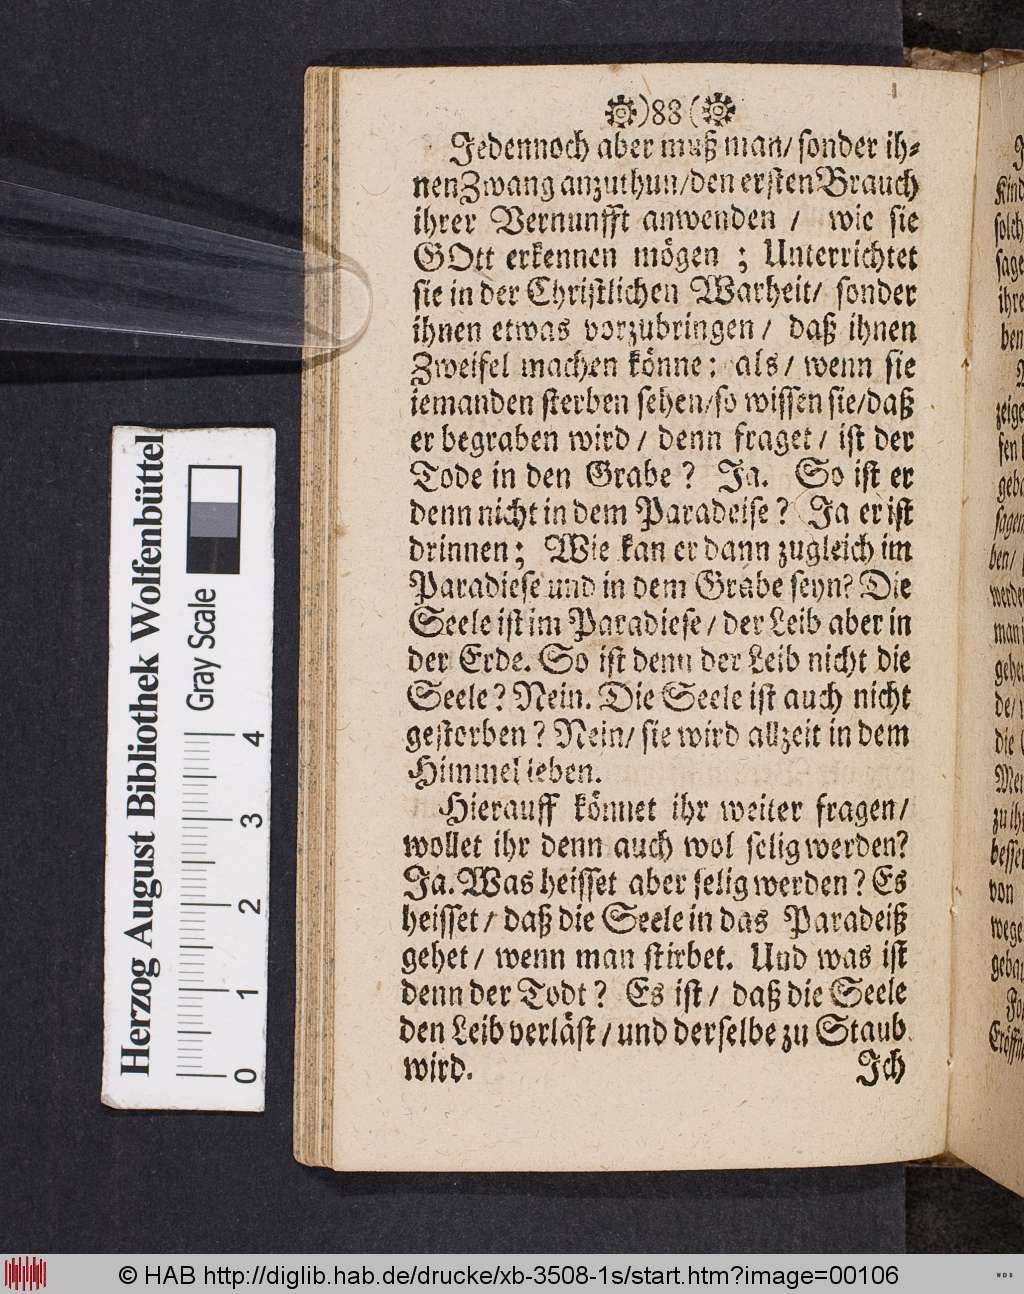 )88(
Jedennoch aber muß man/ sonder ih-
nen Zwang anzuthun/den ersten Brauch
ihrer Vernunfft anwenden / wie sie
GOtt erkennen mögen ; Unterrichtet
sie in der Christlichen Warheit/ sonder
ihnen etwas vorzubringen / daß ihnen
Zweifel machen könne: als / wenn sie
iemanden sterben sehen/so wissen sie/daß
er begraben wird / denn fraget / ist der
Tode in den Grabe ? Ja. So ist er
denn nicht in dem Paradeise ? Ja er ist
drinnen ; Wie kan er dann zugleich im
Paradiese und in dem Grabe seyn? Die
Seele ist im Paradiese / der Leib aber in
der Erde. So ist denn der Leib nicht die
Seele ? Nein. Die Seele ist auch nicht
gestorben ? Nein/ sie wird allzeit in dem
Himmel leben.
Hierauff könnet ihr weiter fragen/
wollet ihr denn auch wol selig werden?
Ja. Was heisset aber selig werden ? Es
heisset / daß die Seele in das Paradeiß
gehet / wenn man stirbet. Und was ist
denn der Todt ? Es ist / daß die Seele
den Leib verläst / und derselbe zu Staub
wird.
Ich
Herzog August Bibliothek Wolfenbüttel
Gray Scale
0 1 2 3 4
© HAB http://diglib.hab.de/drucke/xb-3508-1s/start.htm?image=00106